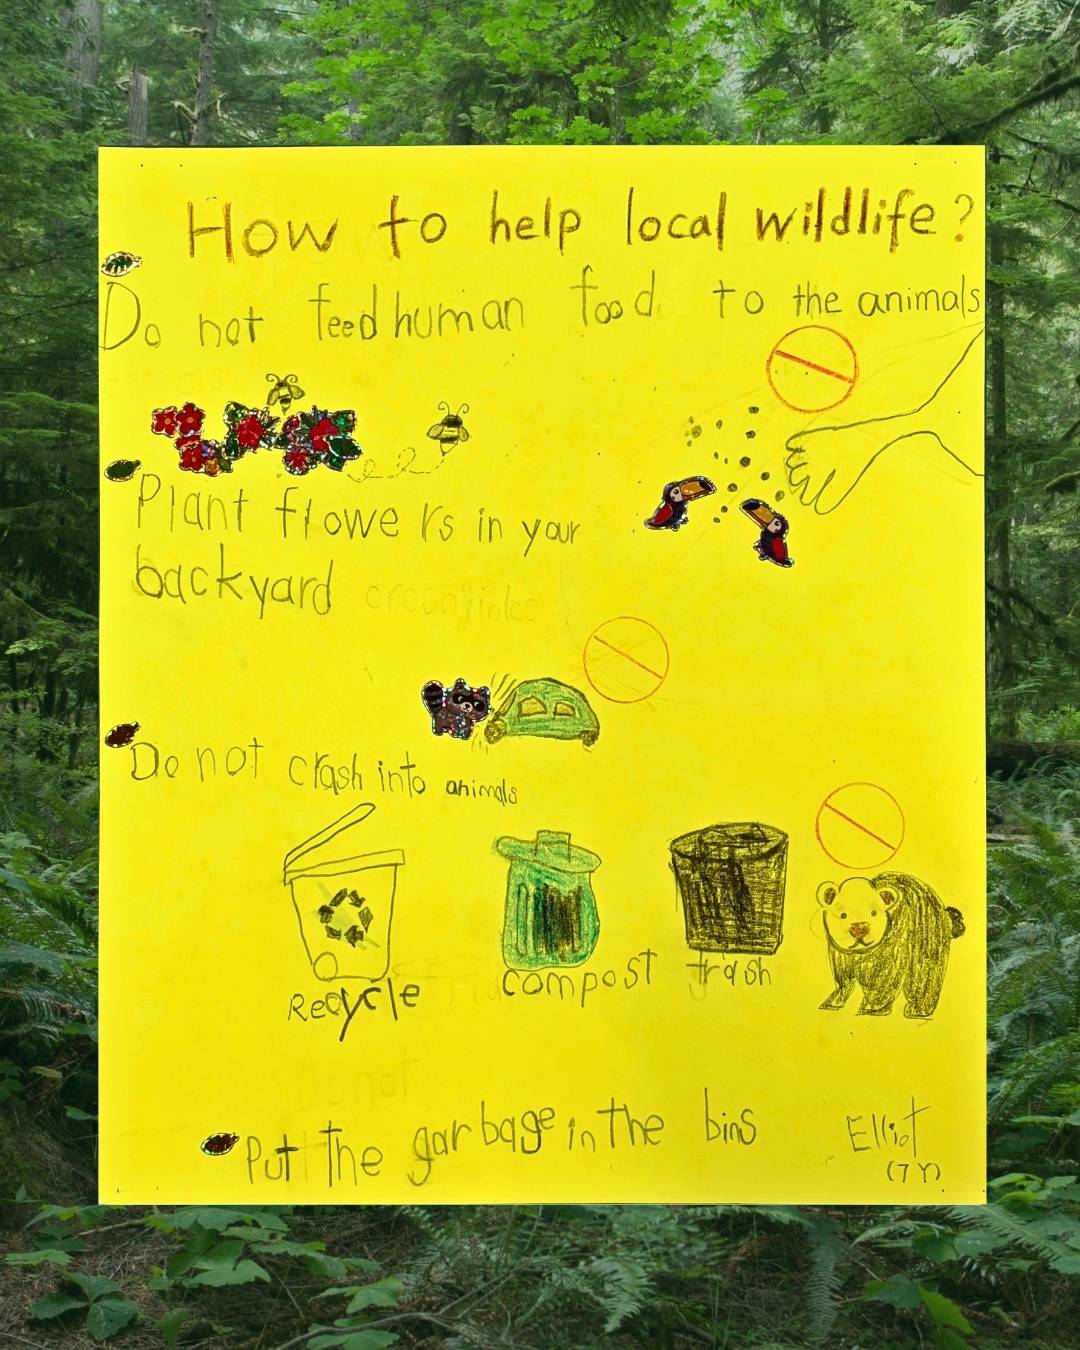 How to help local wildlife?
Do not feed human food to the animals
Plant flowers in your
backyard
Do not crash into animals
Recycle
compost
trash
Put the garbage in the bins
Elliot
(7 Y)